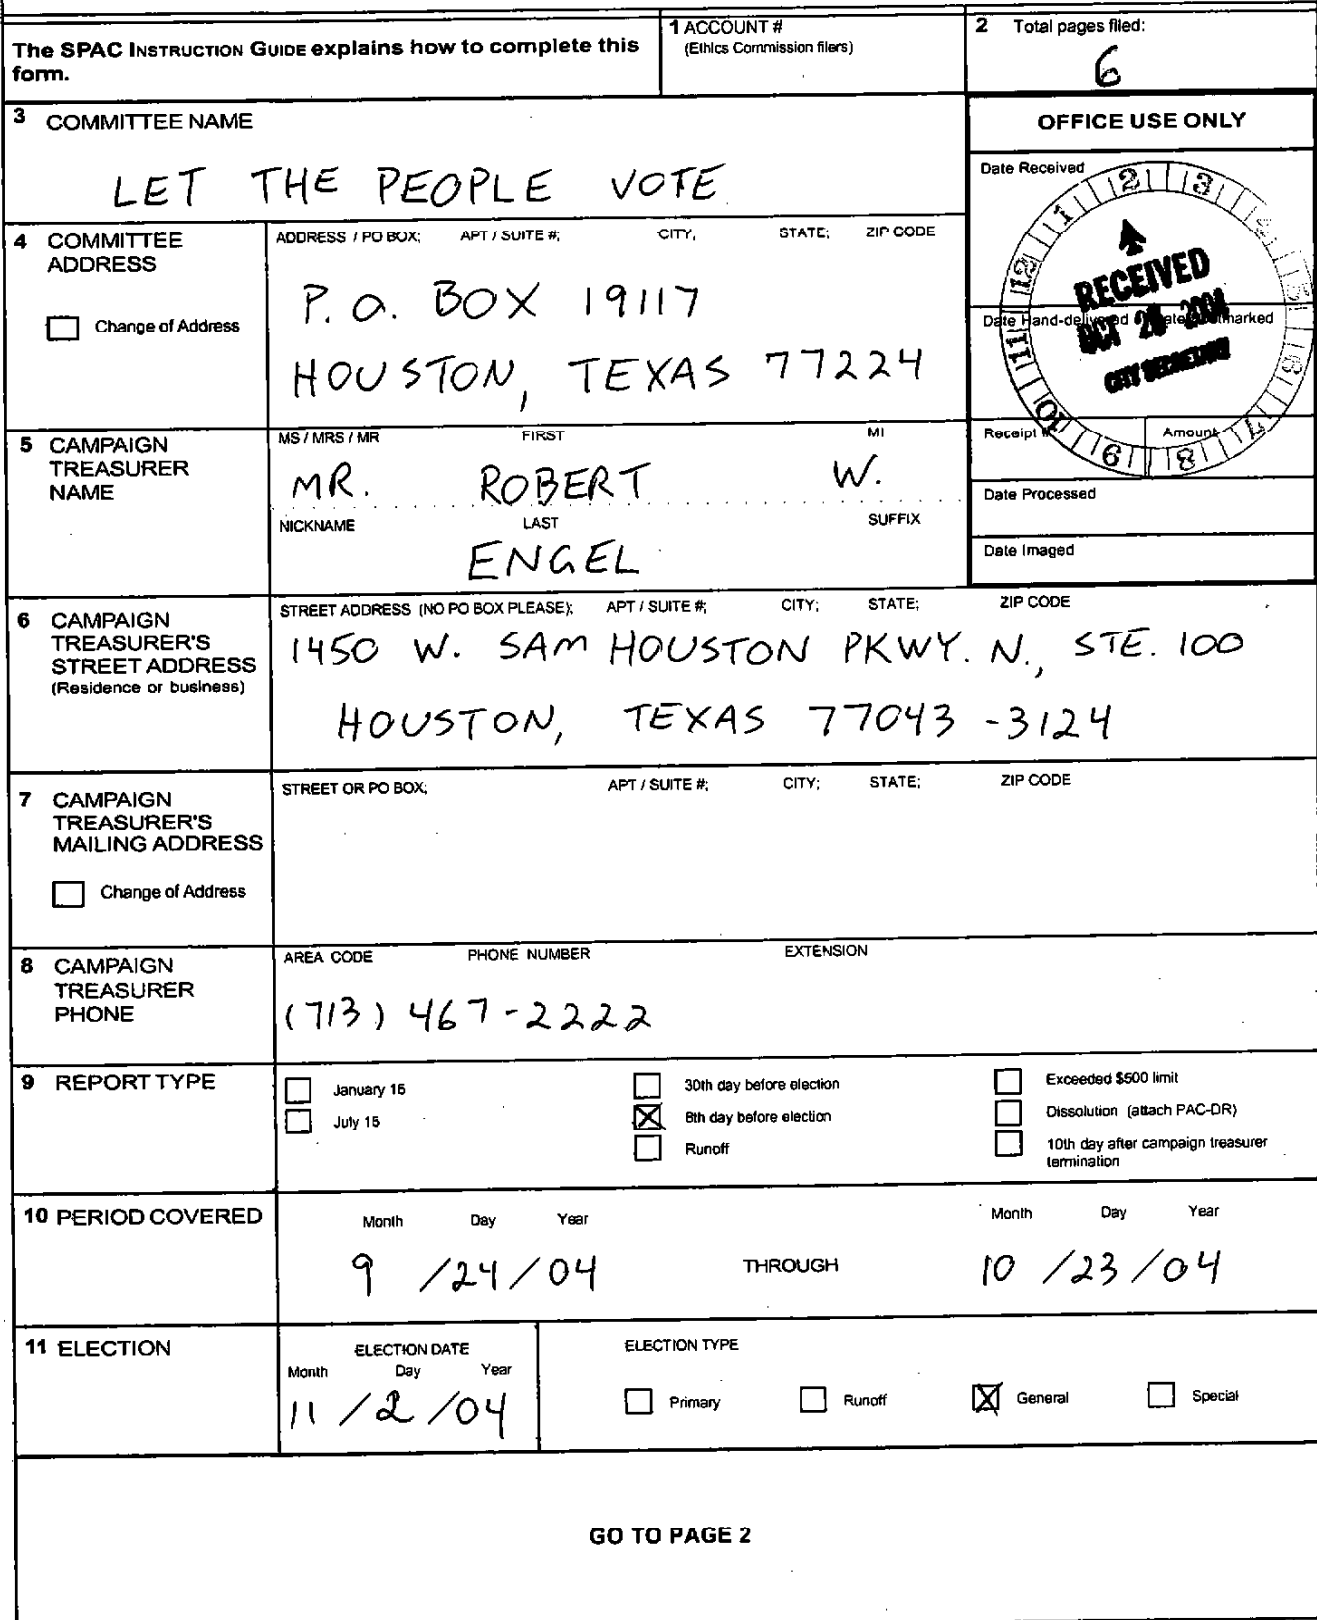 The SPAC INSTRUCTION GUIDE explains how to complete this form.
1 ACCOUNT #
(Ethics Commission filers)
2 Total pages filed:
6
3 COMMITTEE NAME
LET THE PEOPLE VOTE
OFFICE USE ONLY
Date Received
12 1 2 3
RECEIVED
OCT 2004
CITY SECRETARY
11 10 9 8 7
4 COMMITTEE ADDRESS
Change of Address
ADDRESS / PO BOX; APT / SUITE #; CITY; STATE; ZIP CODE
P. O. BOX 19117
HOUSTON, TEXAS 77224
Date Hand-delivered marked
Receipt # Amount
Date Processed
Date Imaged
5 CAMPAIGN TREASURER NAME
MS / MRS / MR FIRST MI
MR. ROBERT W.
NICKNAME LAST SUFFIX
ENGEL
6 CAMPAIGN TREASURER'S STREET ADDRESS
(Residence or business)
STREET ADDRESS (NO PO BOX PLEASE); APT / SUITE #; CITY; STATE; ZIP CODE
1450 W. SAM HOUSTON PKWY. N., STE. 100
HOUSTON, TEXAS 77043-3124
7 CAMPAIGN TREASURER'S MAILING ADDRESS
Change of Address
STREET OR PO BOX; APT / SUITE #; CITY; STATE; ZIP CODE
8 CAMPAIGN TREASURER PHONE
AREA CODE PHONE NUMBER EXTENSION
(713) 467-2222
9 REPORT TYPE
January 15
July 15
30th day before election
8th day before election
Runoff
Exceeded $500 limit
Dissolution (attach PAC-DR)
10th day after campaign treasurer termination
10 PERIOD COVERED
Month Day Year
9 /24/04
THROUGH
Month Day Year
10 /23/04
11 ELECTION
ELECTION DATE
Month Day Year
11 /2 /04
ELECTION TYPE
Primary Runoff General Special
GO TO PAGE 2